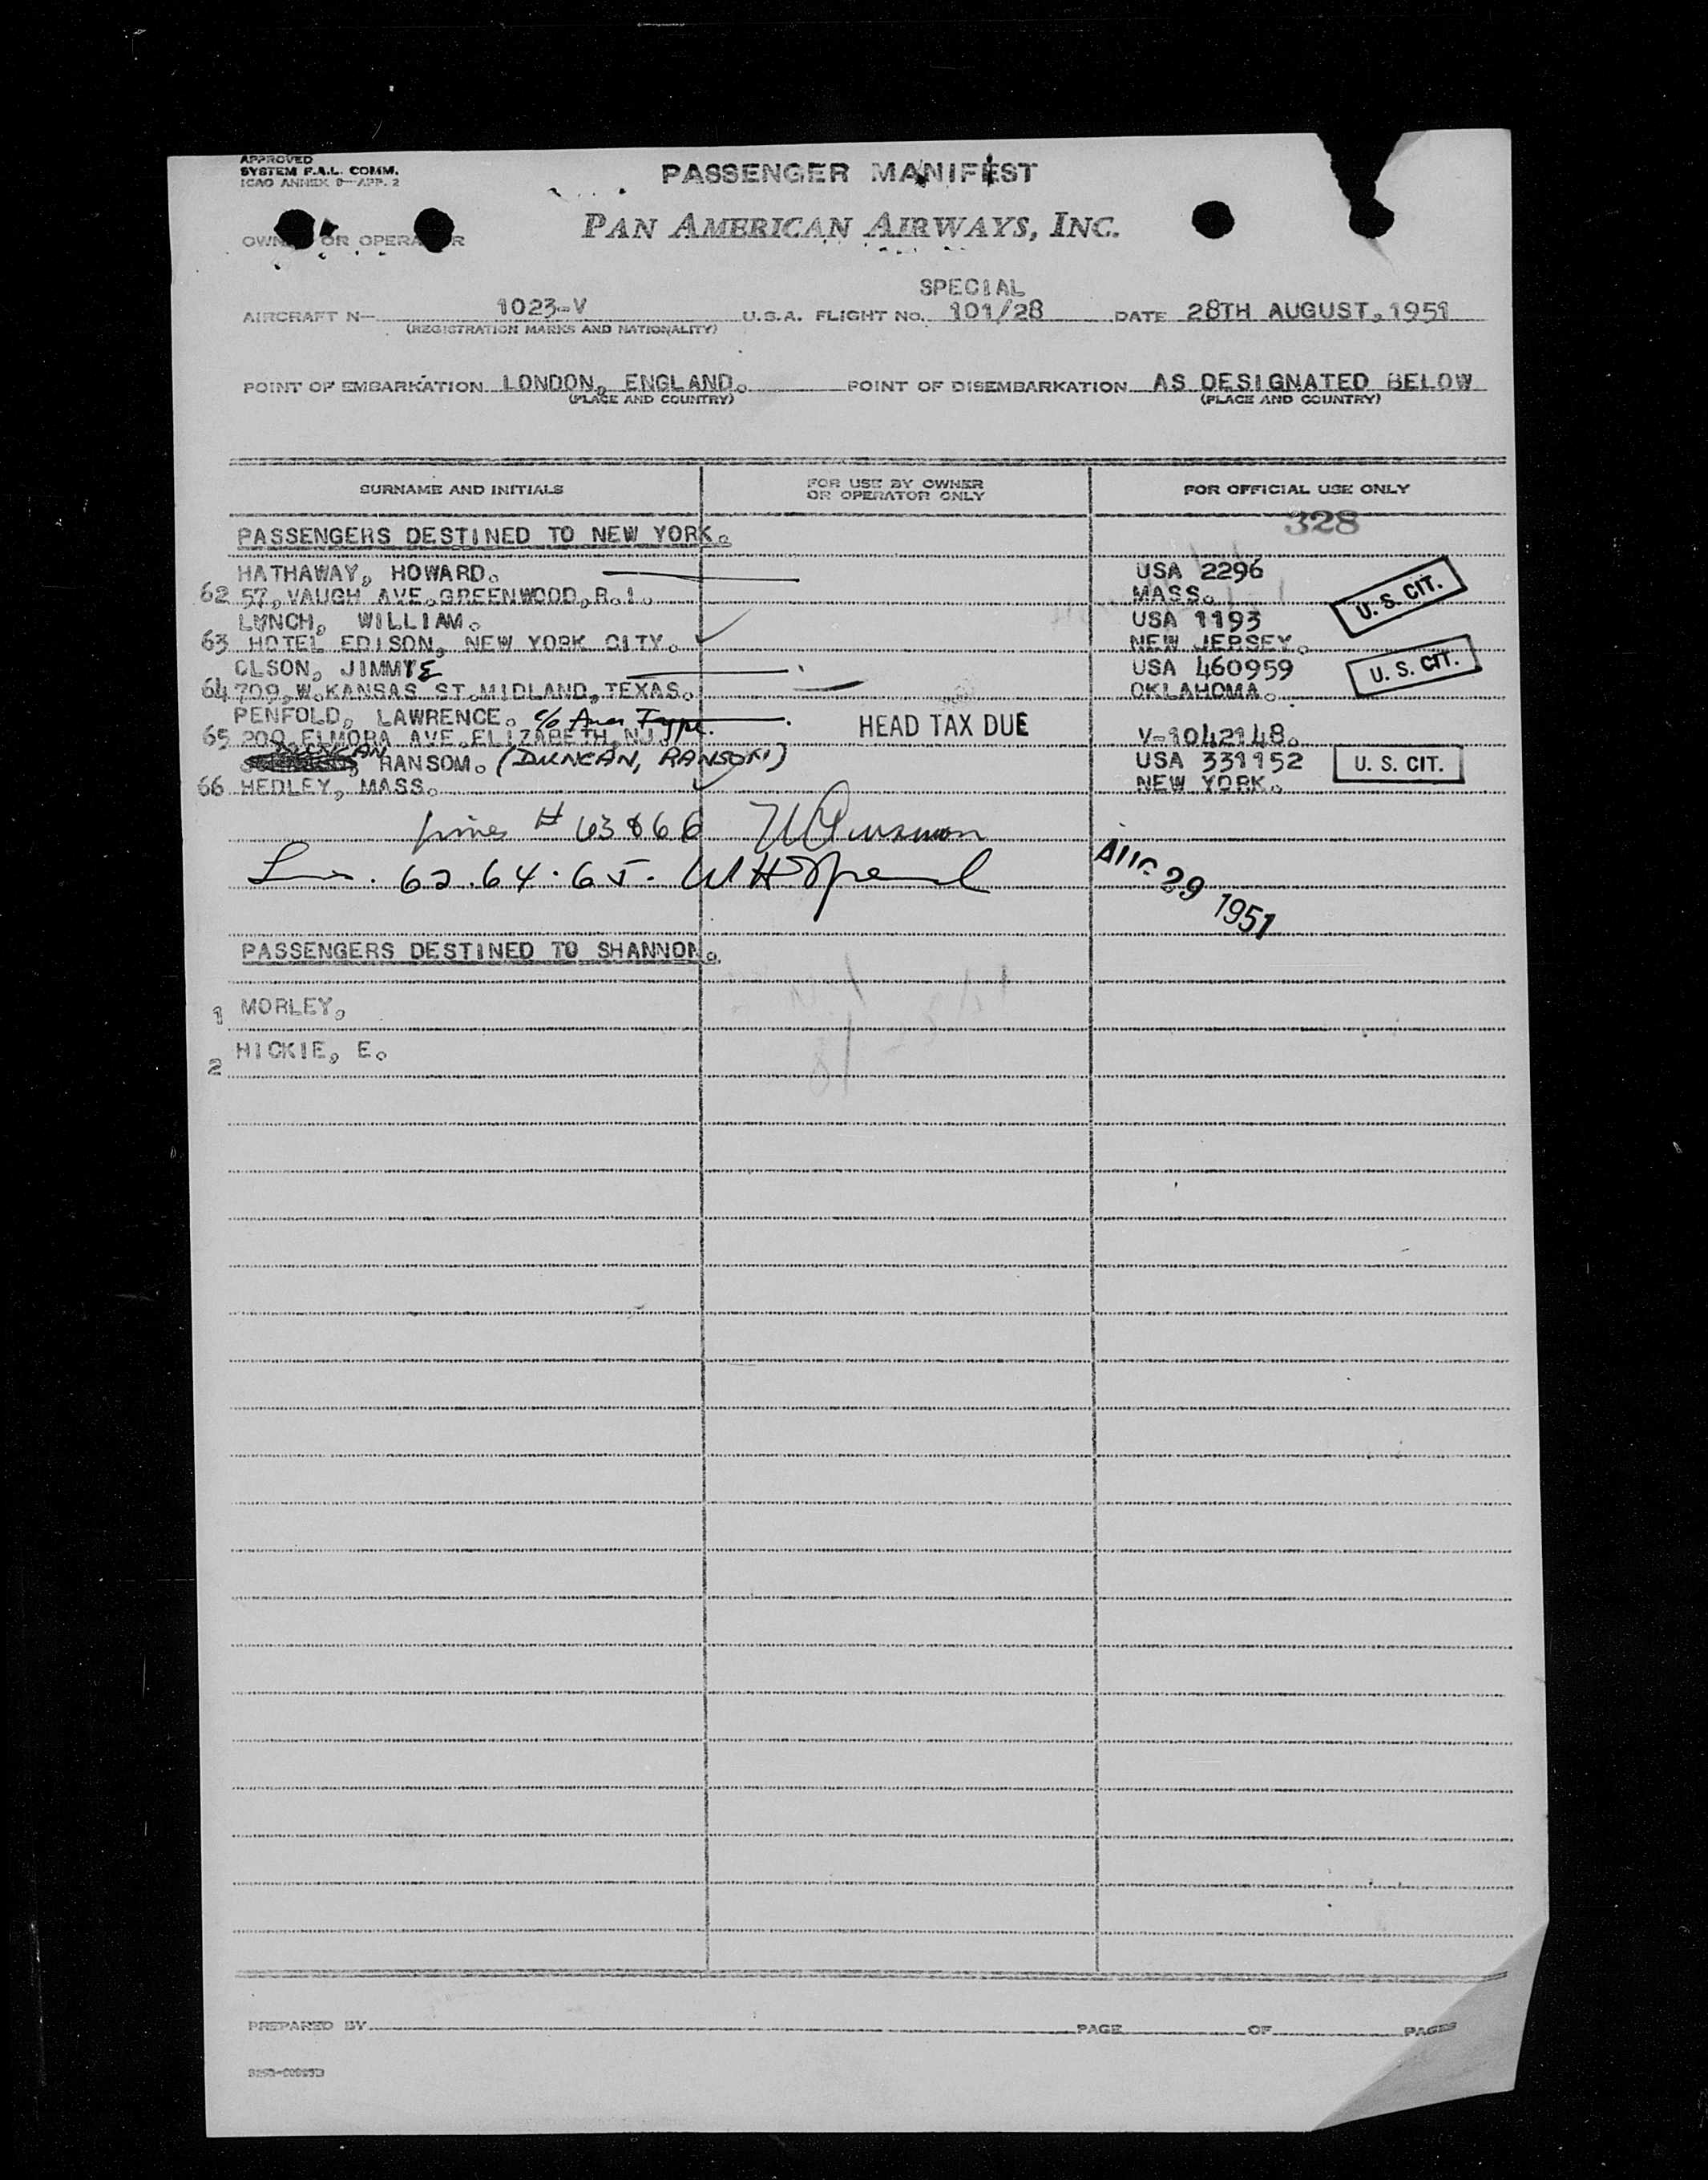 APPROVED
SYSTEM F.A.L. COMM.
ICAO ANNEX 9—APP. 2
PASSENGER MANIFEST
OWNER OR OPERATOR
PAN AMERICAN AIRWAYS, INC.
SPECIAL
AIRCRAFT N— 1023-V U.S.A. FLIGHT NO. 101/28 DATE 28TH AUGUST, 1951
(REGISTRATION MARKS AND NATIONALITY)
POINT OF EMBARKATION LONDON, ENGLAND. POINT OF DISEMBARKATION AS DESIGNATED BELOW
(PLACE AND COUNTRY) (PLACE AND COUNTRY)
SURNAME AND INITIALS FOR USE BY OWNER OR OPERATOR ONLY FOR OFFICIAL USE ONLY
328
PASSENGERS DESTINED TO NEW YORK.
HATHAWAY, HOWARD. USA 2296
62 57, VAUGH AVE.GREENWOOD,R.I. MASS. U. S. CIT.
LYNCH, WILLIAM. USA 1193
63 HOTEL EDISON, NEW YORK CITY. NEW JERSEY.
OLSON, JIMMYE USA 460959 U. S. CIT.
64 709,W.KANSAS ST.MIDLAND,TEXAS. OKLAHOMA.
PENFOLD, LAWRENCE. c/o Amer Type. HEAD TAX DUE
65 200 ELMORA AVE.ELIZABETH,NJ. V-1042148.
DUNCAN RANSOM. (DUNCAN, RANSOM) USA 331152 U. S. CIT.
66 HEDLEY, MASS. NEW YORK.
lines # 63 & 66
62.64.65. AUG 29 1951
PASSENGERS DESTINED TO SHANNON.
1 MORLEY,
2 HICKIE, E.
PREPARED BY PAGE OF PAGES